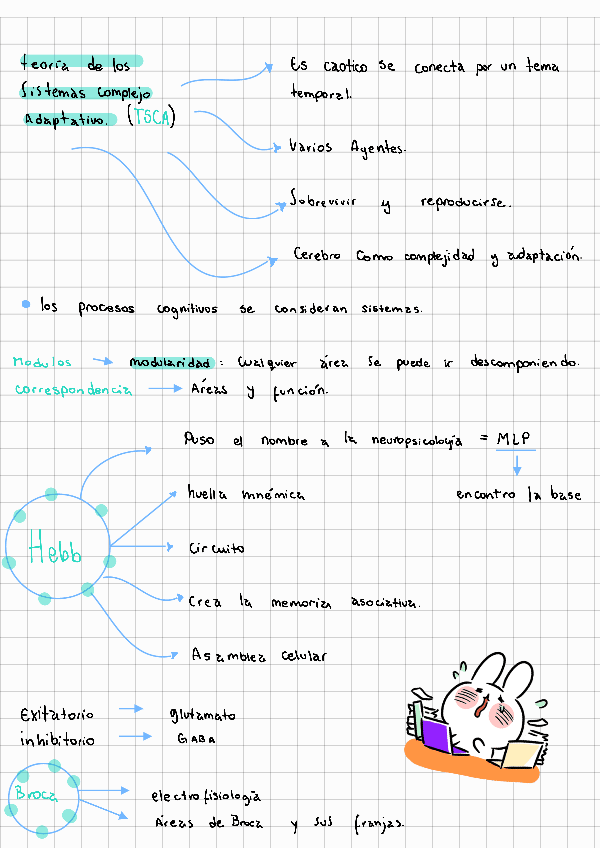 teoría de los
Sistemas complejo
Adaptativo. (TSCA)
Es caotico se conecta por un tema
temporal.
Varios Agentes.
Sobrevivir y reproducirse.
Cerebro Como complejidad y adaptación.
los procesos cognitivos se consideran sistemas.
Modulos → modularidad: Cualquier área se puede ir descomponiendo.
correspondencia → Áreas y función.
Hebb
Puso el nombre a la neuropsicología = MLP
encontro la base
huella mnémica
Circuito
Crea la memoria asociativa.
Asamblea celular
Exitatorio → glutamato
inhibitorio → GABA
Broca
electrofisiología
Áreas de Broca y sus franjas.